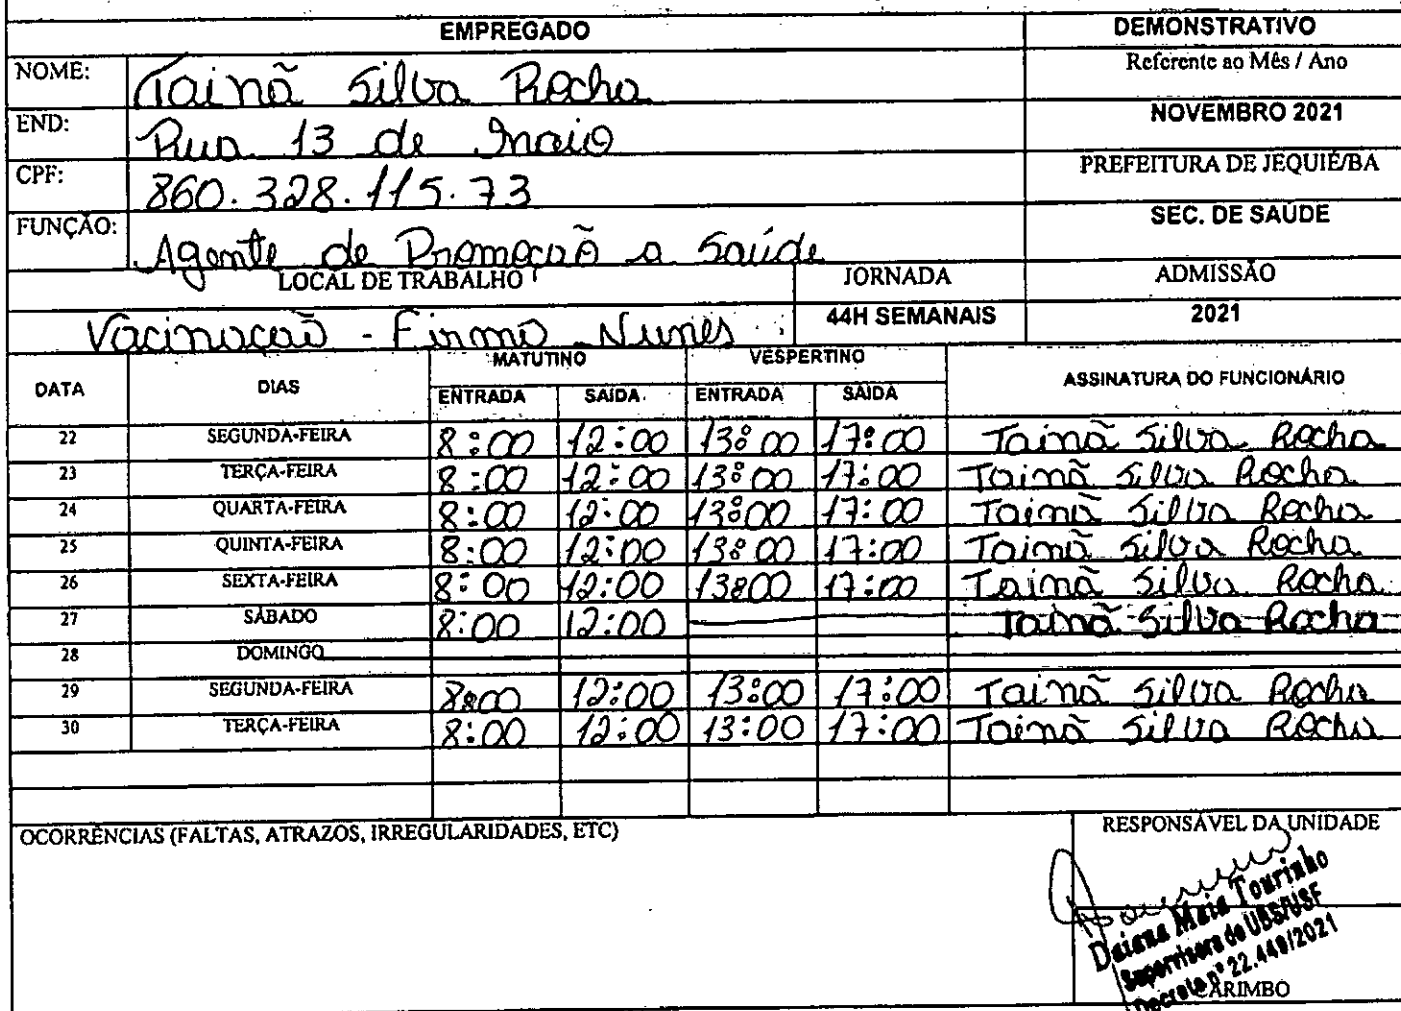 EMPREGADO
DEMONSTRATIVO
NOME: Tainã Silva Rocha
Referente ao Mês / Ano
END: Rua 13 de maio
NOVEMBRO 2021
CPF: 860.328.115.73
PREFEITURA DE JEQUIÉ/BA
FUNÇÃO: Agente de Promoção a Saúde
SEC. DE SAÚDE
LOCAL DE TRABALHO JORNADA ADMISSÃO
Vacinação - Firmo Nunes 44H SEMANAIS 2021
DATA DIAS MATUTINO VESPERTINO ASSINATURA DO FUNCIONÁRIO
ENTRADA SAÍDA ENTRADA SAÍDA
22 SEGUNDA-FEIRA 8:00 12:00 13:00 17:00 Tainã Silva Rocha
23 TERÇA-FEIRA 8:00 12:00 13:00 17:00 Tainã Silva Rocha
24 QUARTA-FEIRA 8:00 12:00 13:00 17:00 Tainã Silva Rocha
25 QUINTA-FEIRA 8:00 12:00 13:00 17:00 Tainã Silva Rocha
26 SEXTA-FEIRA 8:00 12:00 13:00 17:00 Tainã Silva Rocha
27 SÁBADO 8:00 12:00 Tainã Silva Rocha
28 DOMINGO
29 SEGUNDA-FEIRA 8:00 12:00 13:00 17:00 Tainã Silva Rocha
30 TERÇA-FEIRA 8:00 12:00 13:00 17:00 Tainã Silva Rocha
OCORRÊNCIAS (FALTAS, ATRAZOS, IRREGULARIDADES, ETC)
RESPONSÁVEL DA UNIDADE
Daiana Maia Tourinho
Supervisora de UBS/USF
Decreto nº 22.449/2021
CARIMBO